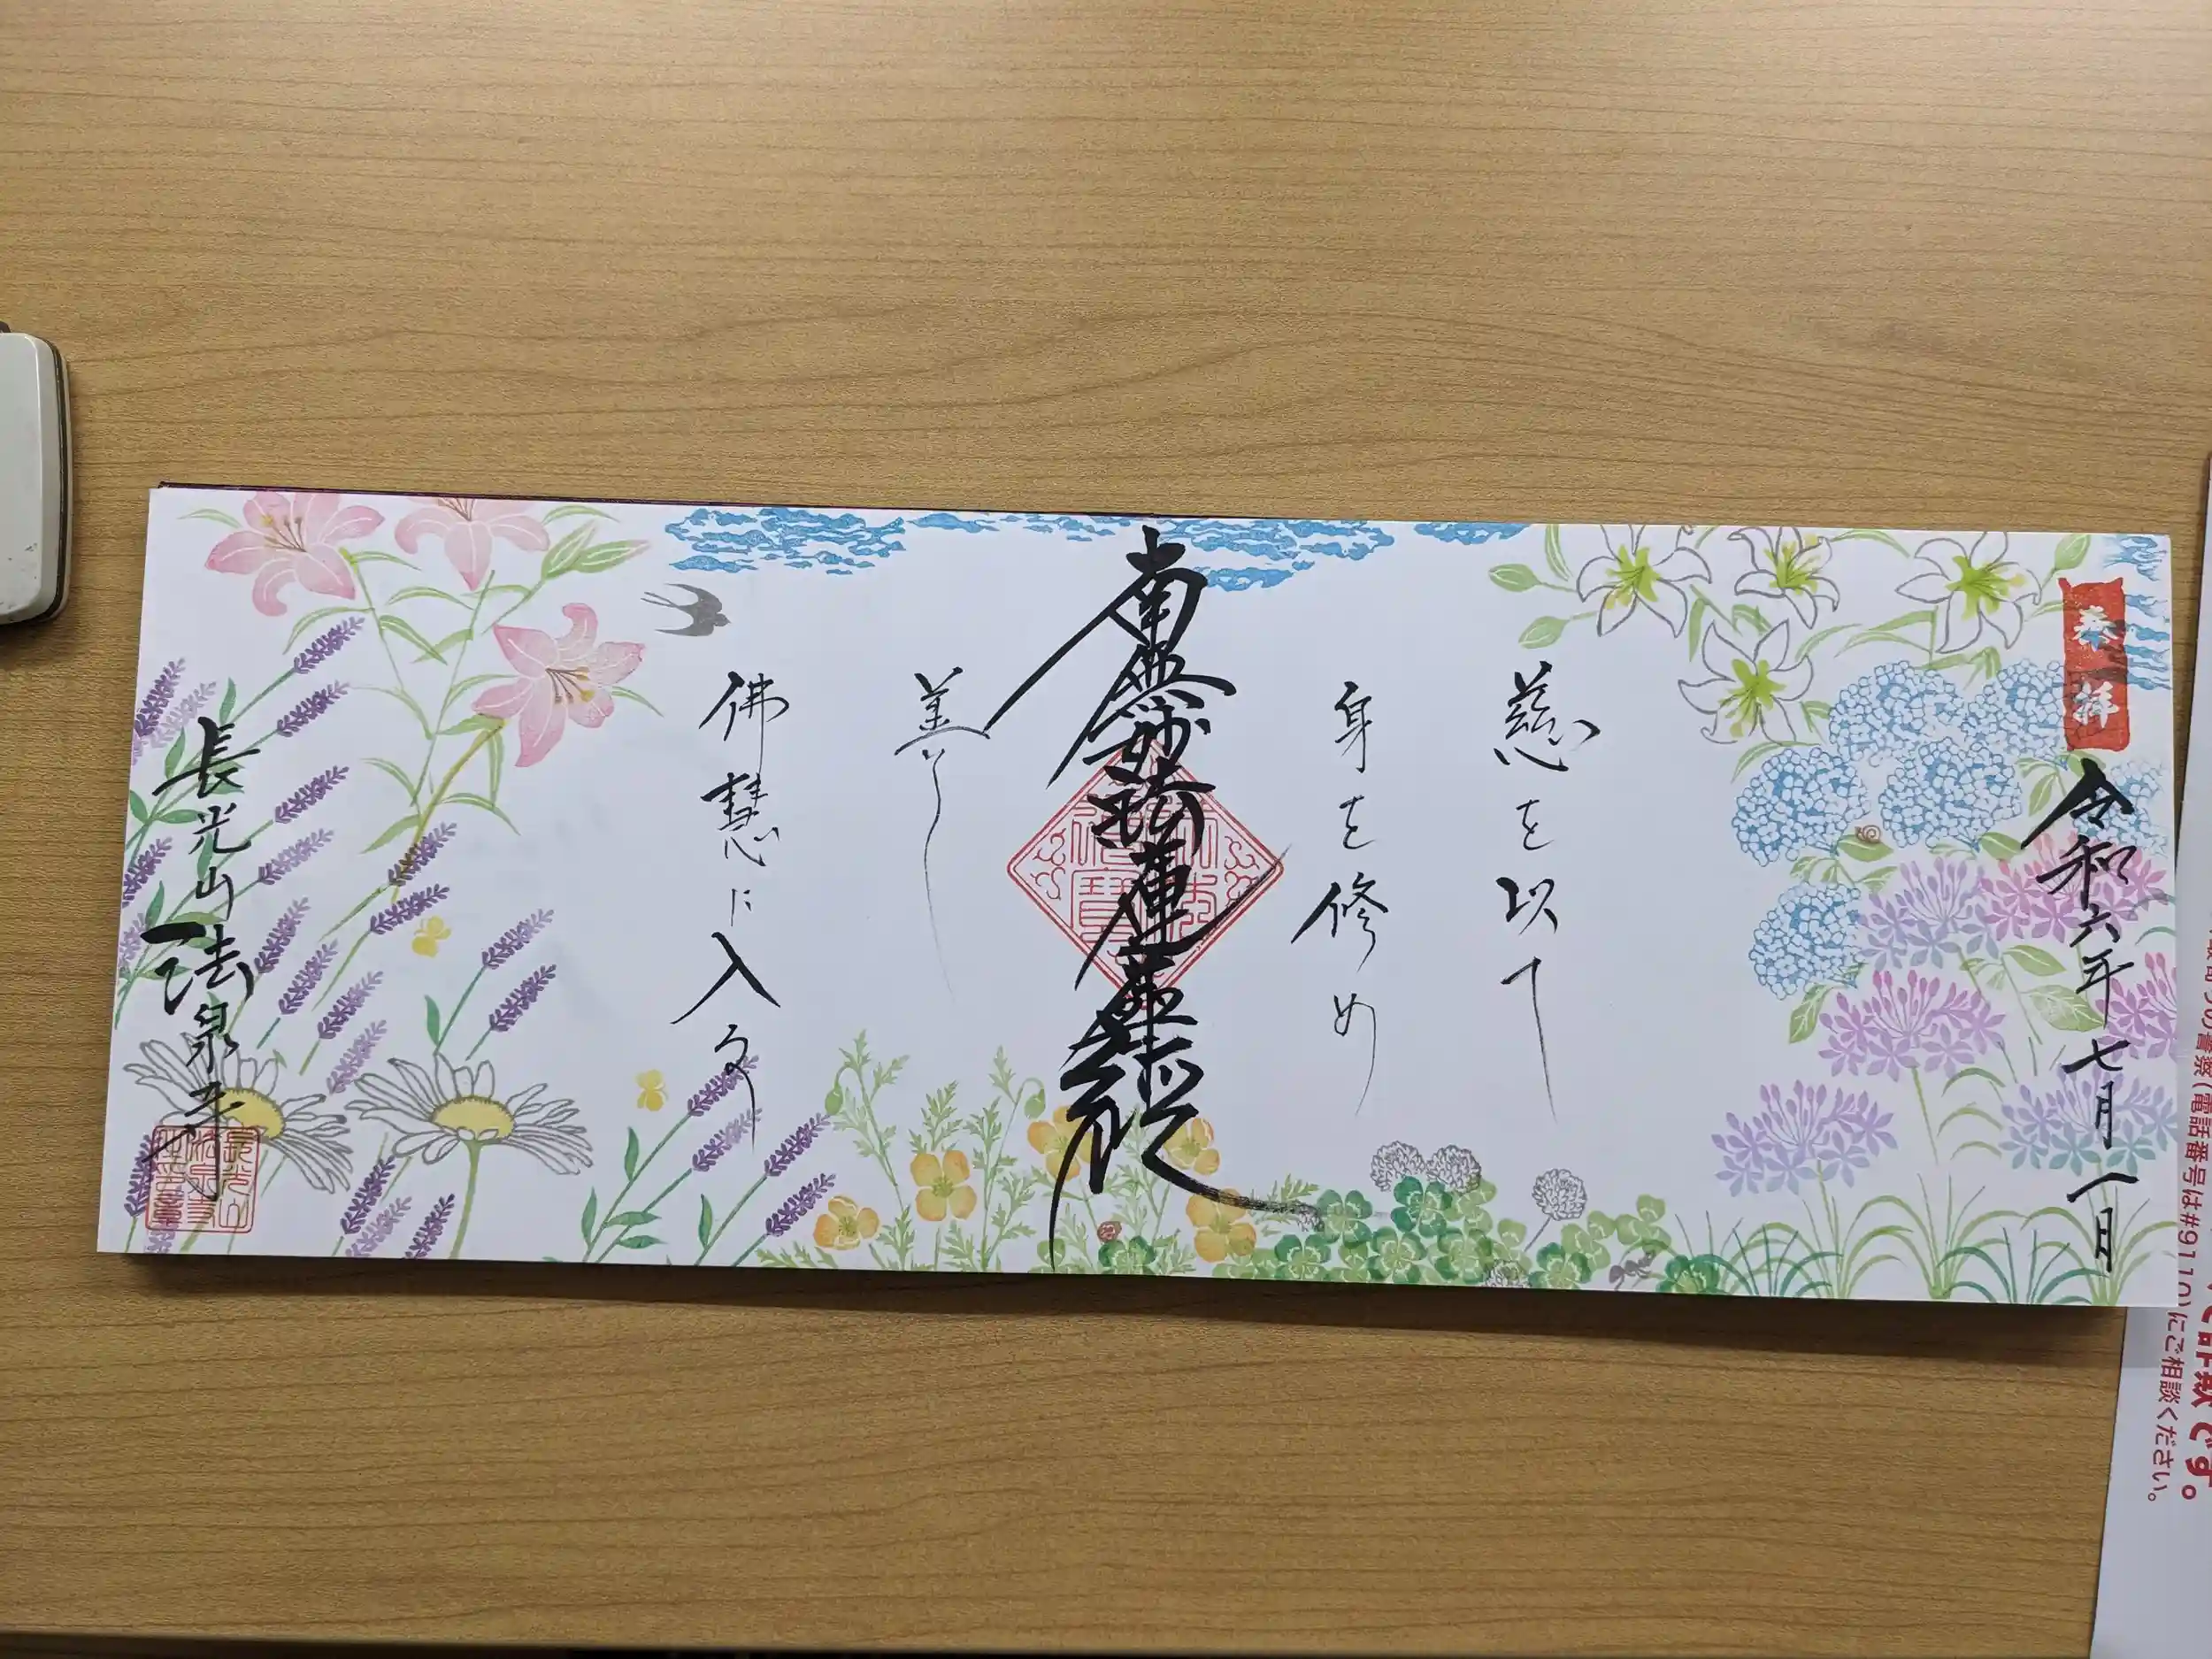 奉拝
令和六年七月一日
慈を以て
身を修め
南無妙法蓮華経
善く
佛慧に入る
長光山法泉寺
の警察(電話番号は#9110)にご相談ください。
です。